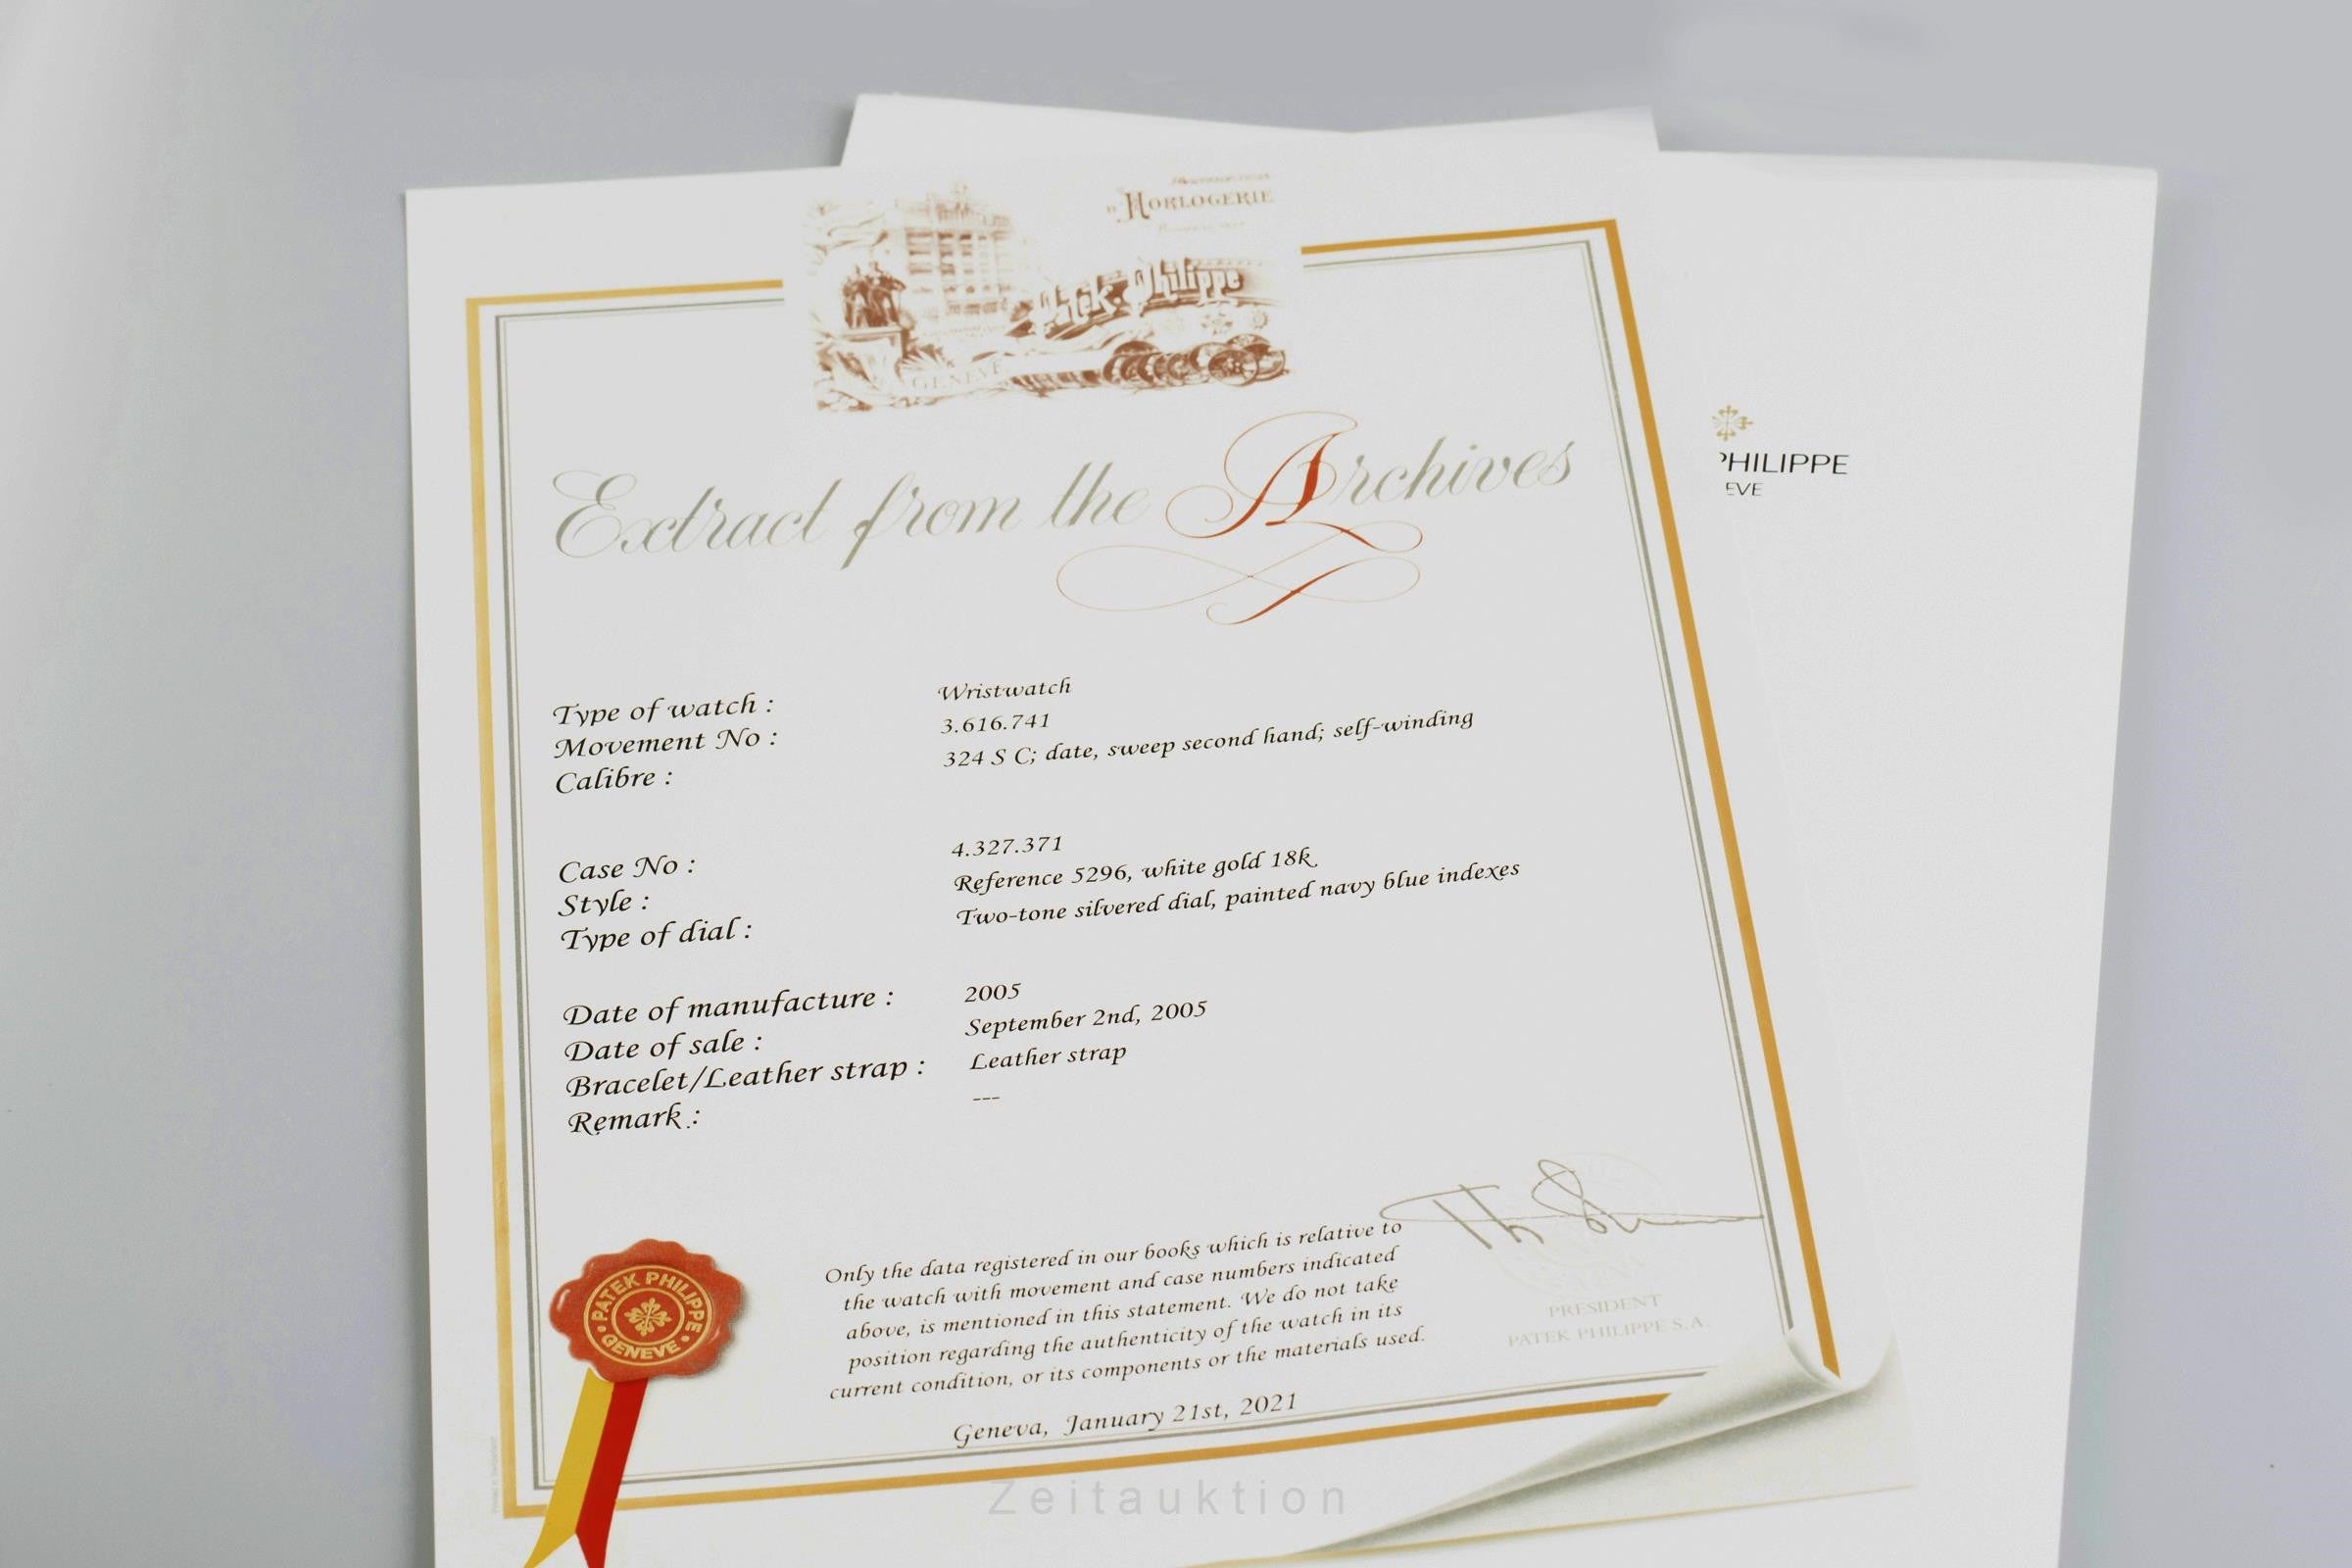 D'HORLOGERIE
Patek Philippe
GENEVE
Extract from the Archives
PHILIPPE
EVE
Type of watch : Wristwatch
Movement No : 3.616.741
Calibre : 324 S C; date, sweep second hand; self-winding
Case No : 4.327.371
Style : Reference 5296, white gold 18k
Type of dial : Two-tone silvered dial, painted navy blue indexes
Date of manufacture : 2005
Date of sale : September 2nd, 2005
Bracelet/Leather strap : Leather strap
Remark : ---
Only the data registered in our books which is relative to
the watch with movement and case numbers indicated
above, is mentioned in this statement. We do not take
position regarding the authenticity of the watch in its
current condition, or its components or the materials used.
Geneva, January 21st, 2021
PRESIDENT
PATEK PHILIPPE S.A.
PATEK PHILIPPE
GENEVE
Zeitauktion